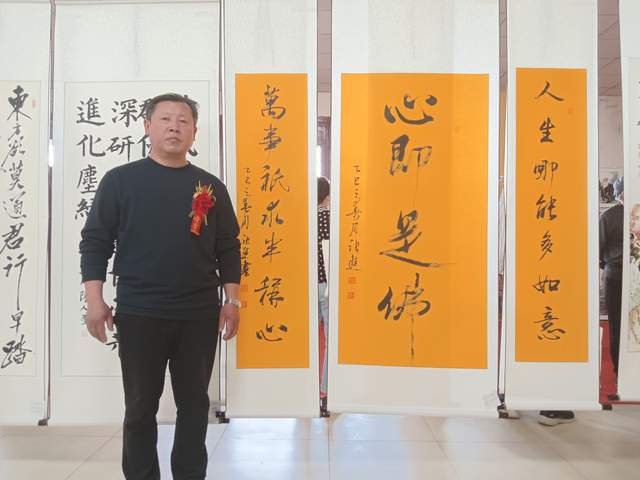 人生哪能多如意
心即是佛
乙巳
萬事祇求半稱心
乙巳
深研
進化塵緣
東方欲曉莫道君行早踏